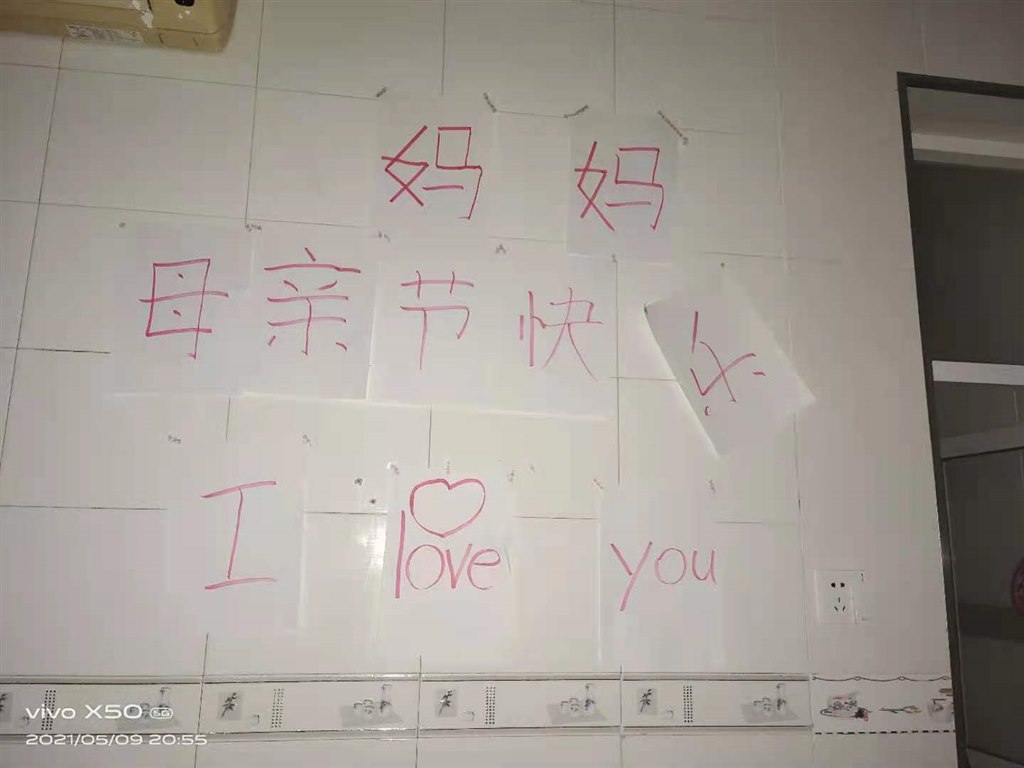 妈妈
母亲节快乐
I love you
vivo X50 5G
2021/05/09 20:55